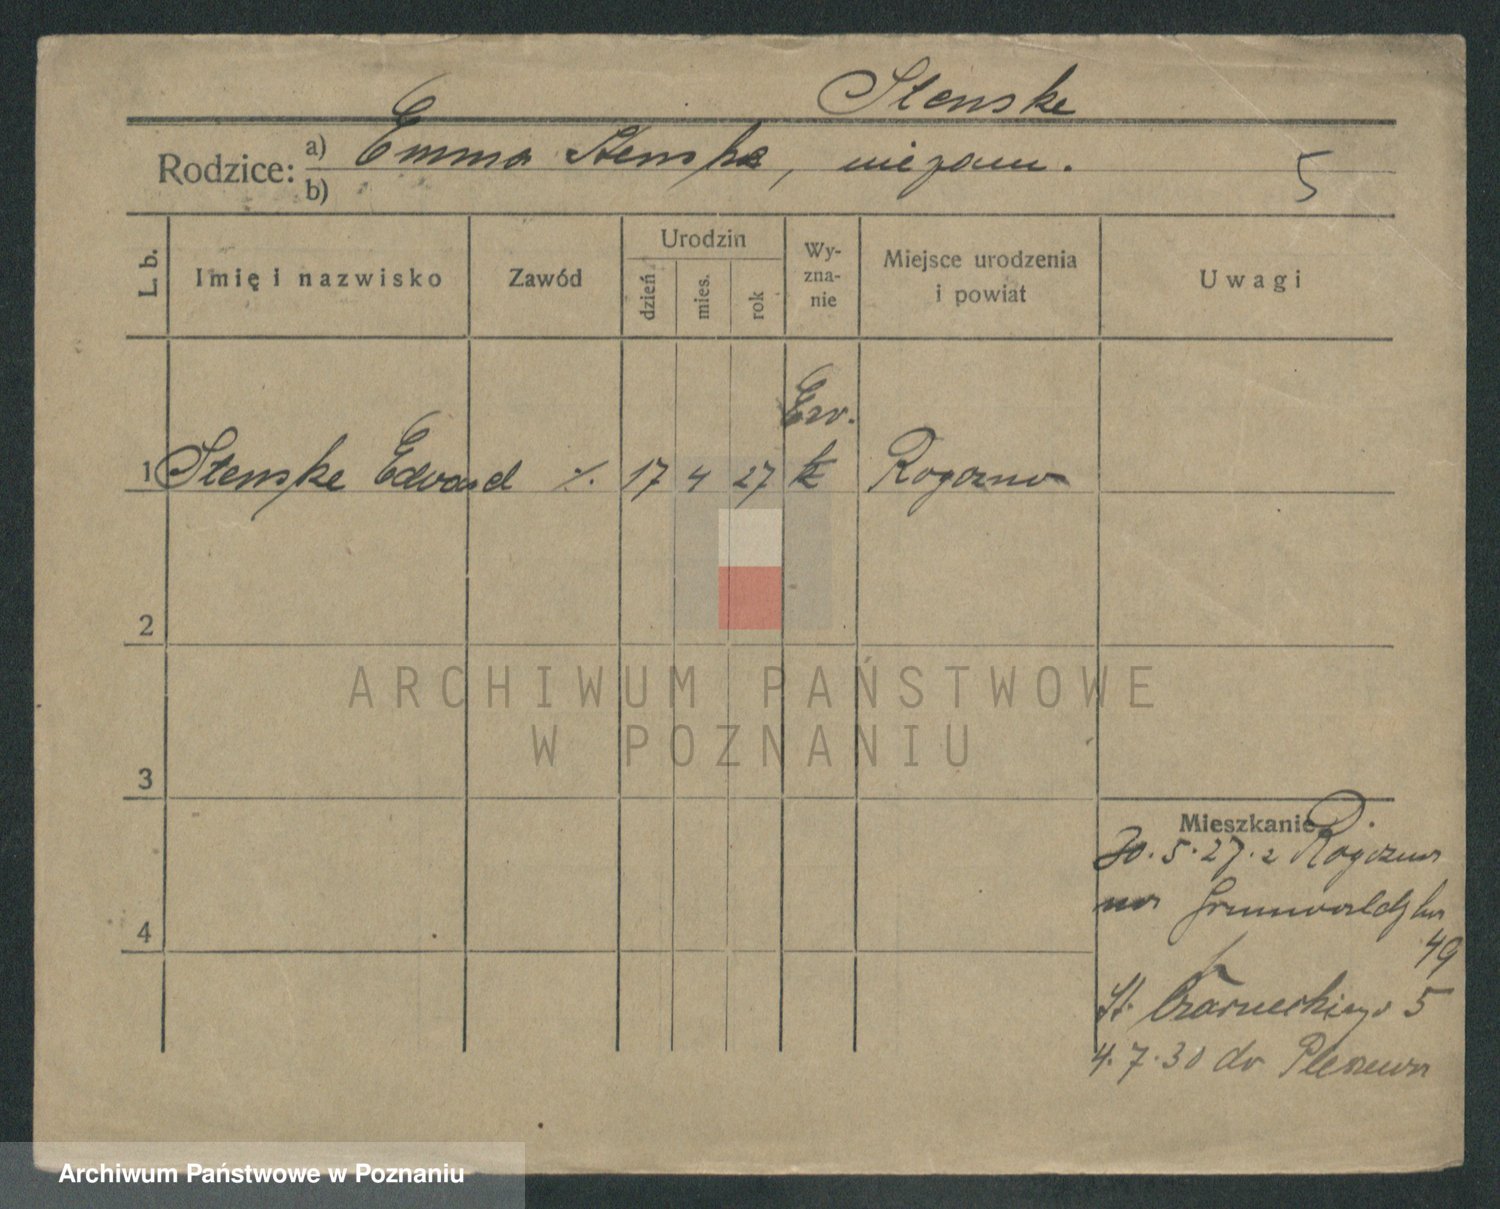 Stenske
Rodzice: a) Emma Stenske, niezam.
b)
5
L. b. Imię i nazwisko Zawód Urodzin dzień mies. rok Wy-zna-nie Miejsce urodzenia i powiat Uwagi
Ew.
1 Stenske Edward ./. 17 4 27 k Rogoźno
2
ARCHIWUM PAŃSTWOWE
W POZNANIU
3
Mieszkanie
30.5.27. z Rogoźna
na Grunwaldzka
49
4
St. Czarneckiego 5
4.7.30 do Pleszewa
Archiwum Państwowe w Poznaniu